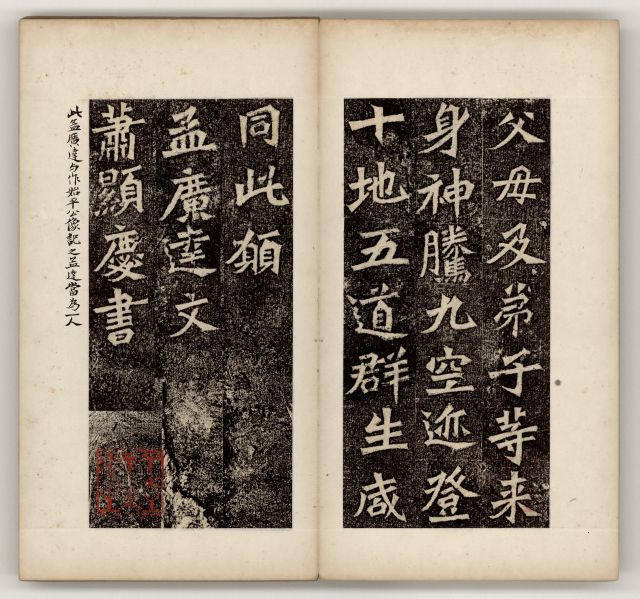 父母及弟子等来
身神騰九空迹登
十地五道群生咸
同此願
孟廣達文
蕭顯慶書
此孟廣達與作始平公像記之孟達當為一人